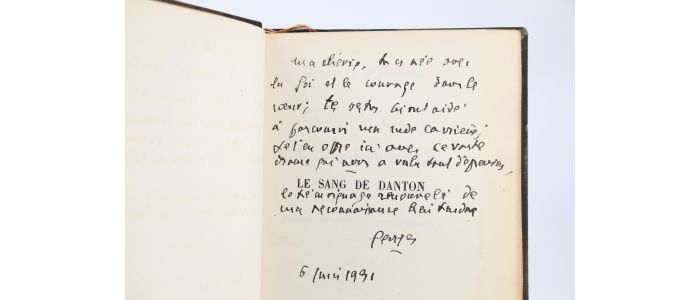 ma chérie, tu es née avec
la foi et le courage dans le
cœur; vertus m'ont aidé
à parcourir rude carrière;
Je t'en offre ici avec ce
drame qui nous a valu tant d'épreuves,
LE SANG DE DANTON
le témoignage renouvelé de
ma reconnaissance bien tendre
Georges
6 juin 1931